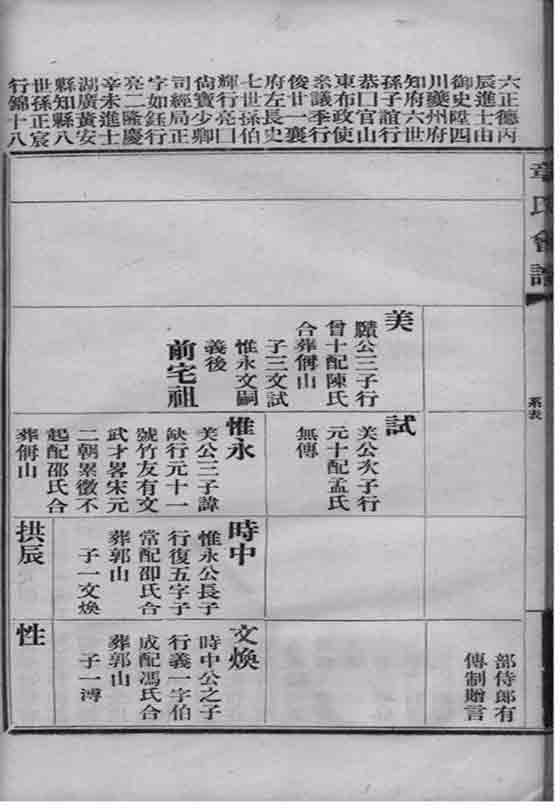 章氏會譜
系表
六正德丙
辰進士由
御史陞四
川夔州府
知府六世
孫子誼行
恭囗官山
東布政使
叅議季行
俊廿一襄
府左長史
七世孫伯
輝行亮囗
尙寶少卿
司經局正
字如鈺行
亮二隆慶
辛未進士
湖廣黃安
縣知縣八
世孫正宸
行錦十八
美
公三子行
曾十配陳氏
合葬偁山
子三文試
惟永文嗣
義後
前宅祖
試
美公次子行
元十配孟氏
無傳
惟永
美公三子諱
缺行元十一
號竹友有文
武才畧宋元
二朝累徵不
起配邵氏合
葬偁山
時中
惟永公長子
行復五字子
常配邵氏合
葬郭山
子一文煥
拱辰
部侍郎有
傳制贈言
文煥
時中公之子
行義一字伯
成配馮氏合
葬郭山
子一溥
性